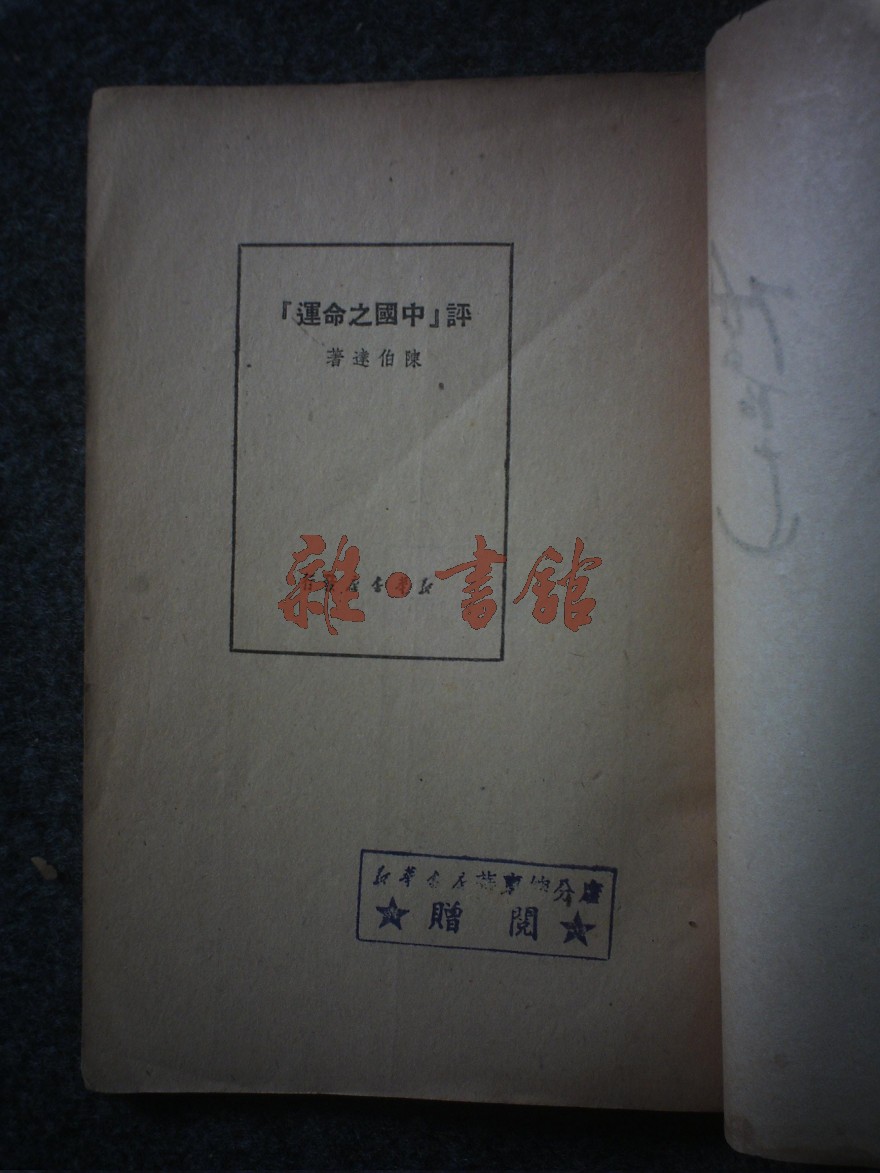 評『中國之命運』
陳伯達著
新華書店
雜·書館
新華書店 東 分店
★ 贈 閱 ★